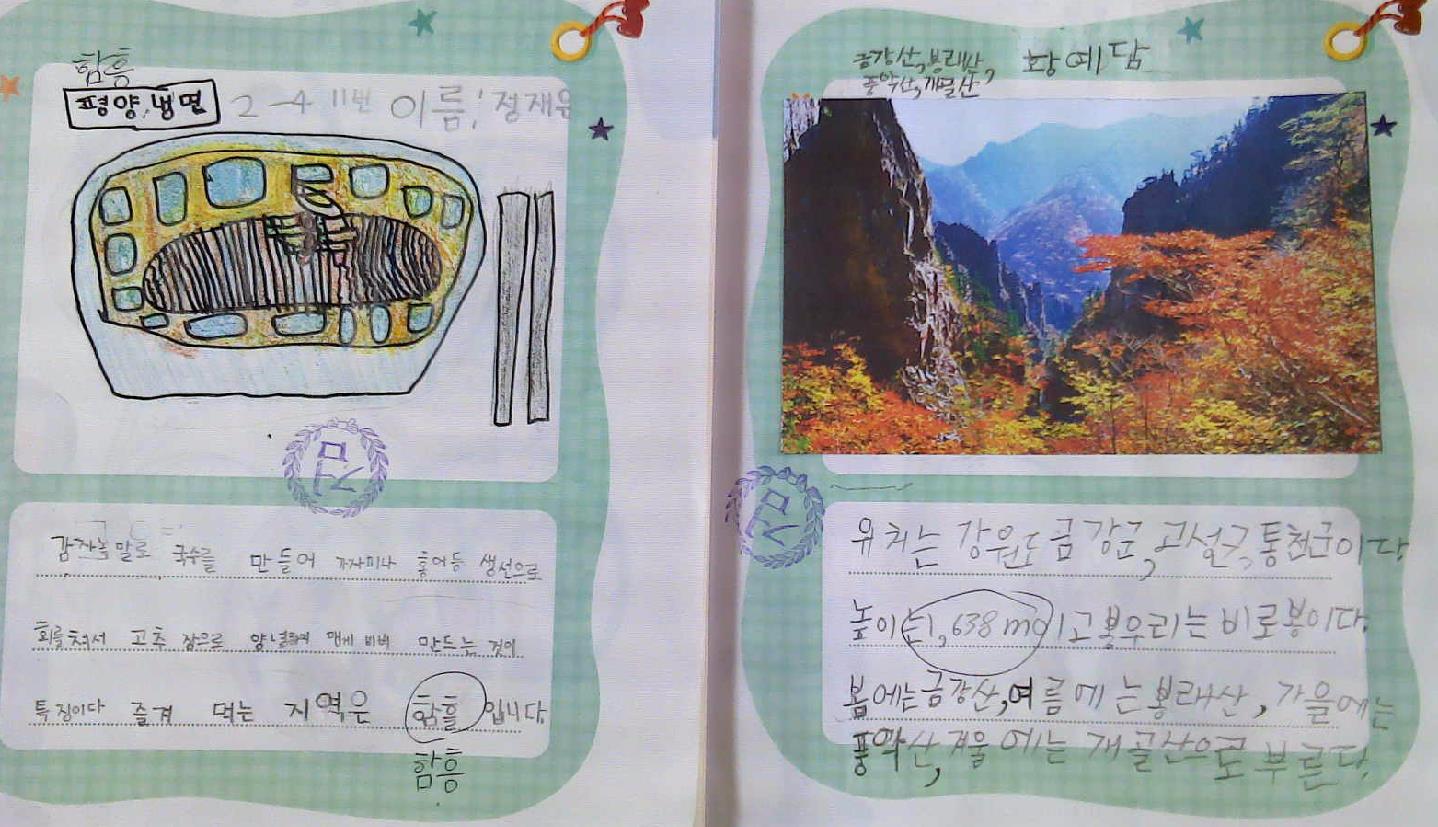 함흥
평양,냉면 2-4 11번 이름: 정재윤
감자녹말로 국수를 만들어 가자미나 홍어등 생선으로
회를쳐서 고추 장으로 양념하여 맵게 비벼 만드는 것이
특징이다 즐겨 먹는 지역은 함흘입니다
함흥
금강산,봉래산, 황예담
풍악산,개골산
위치는 강원도 금강군, 고성군,통천군이다
높이는1,638m이고 봉우리는 비로봉이다.
봄에는금강산,여름에는봉래산, 가을에는
풍악산,겨울에는 개골산으로 부른다.